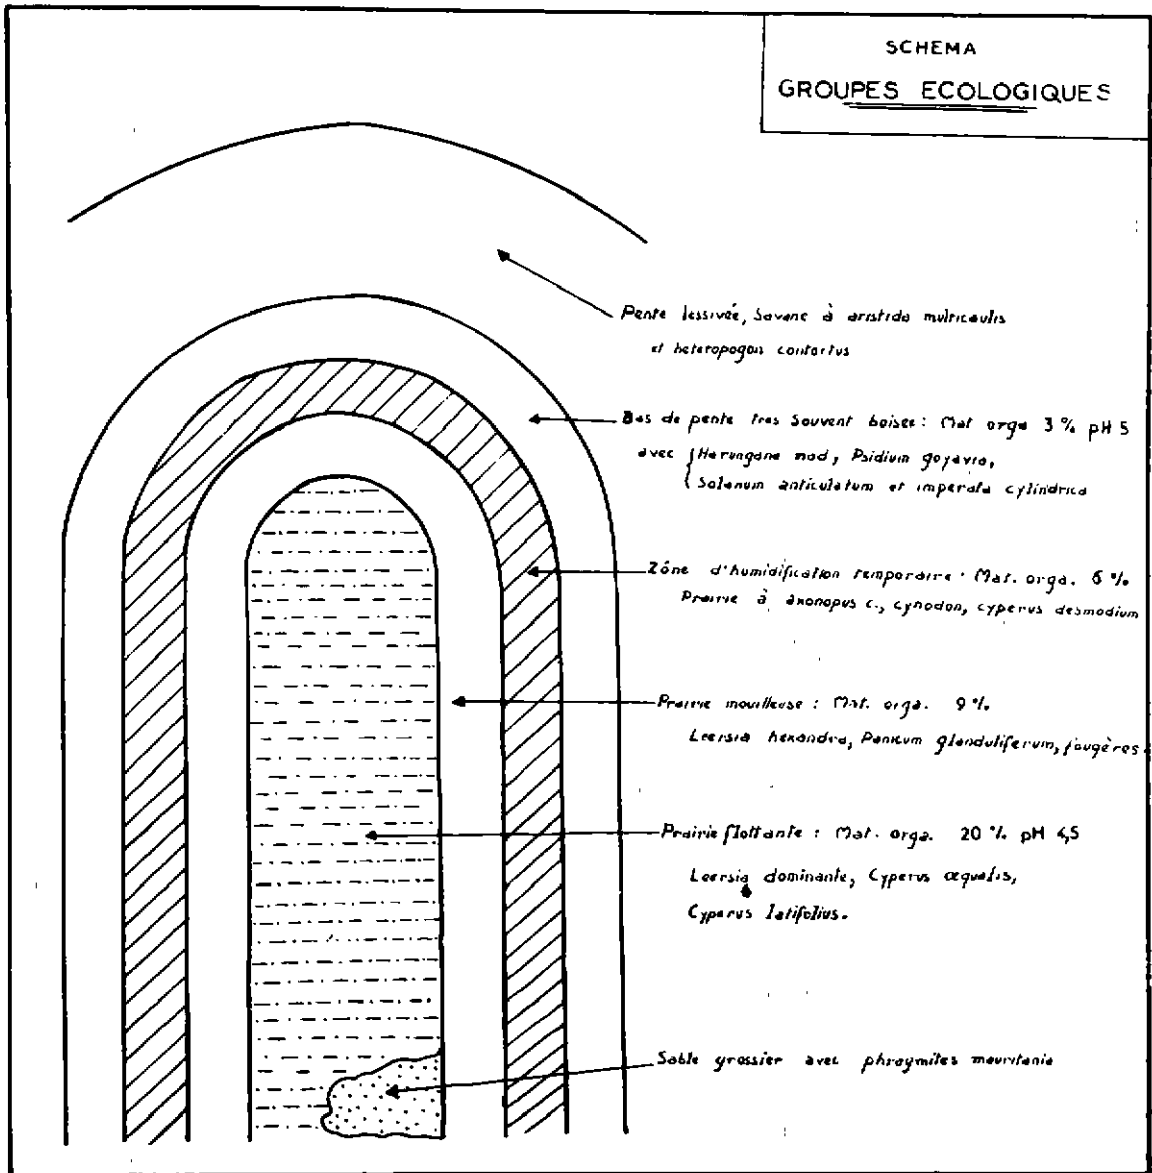 SCHEMA
GROUPES ECOLOGIQUES
Pente lessivée, Savane à aristida multicaulis
et heteropogon contortus
Bas de pente tres souvent boisée : Mat orga 3 % pH 5
avec { Harungane mad, Psidium goyavra,
{ Solanum anticulatum et imperata cylindrica
Zône d'humidification temporaire : Mat. orga. 6 %
Prairie à axonopus c., cynodon, cyperus desmodium
Prairie mouilleuse : Mat. orga. 9 %
Leersia hexandra, Panicum glanduliferum, fougères.
Prairie flottante : Mat. orga. 20 % pH 4,5
Leersia dominante, Cyperus æqualis,
Cyperus latifolius.
Sable grossier avec phragmites mauritania